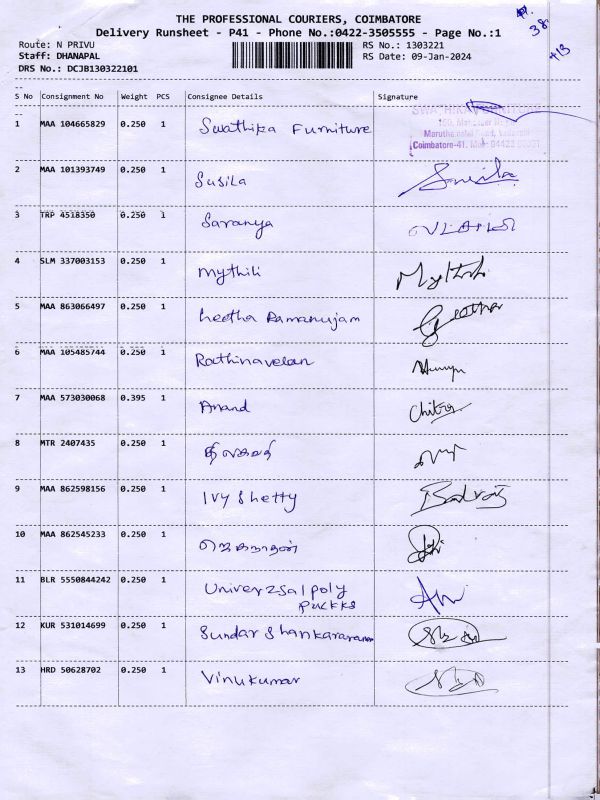 THE PROFESSIONAL COURIERS, COIMBATORE
Delivery Runsheet - P41 - Phone No.:0422-3505555 - Page No.:1
38
+13
Route: N PRIVU RS No.: 1303221
Staff: DHANAPAL RS Date: 09-Jan-2024
DRS No.: DCJB130322101
S No Consignment No Weight PCS Consignee Details Signature
1 MAA 104665829 0.250 1 Swathika Furniture
Coimbatore-41.
2 MAA 101393749 0.250 1 Susila
3 TRP 4518350 0.250 1 Saranya
4 SLM 337003153 0.250 1 Mythili
5 MAA 863066497 0.250 1 Geetha Ramanujam Geetha
6 MAA 105485744 0.250 1 Rathinavelan
7 MAA 573030068 0.395 1 Anand Chitra
8 MTR 2407435 0.250 1
9 MAA 862598156 0.250 1 Ivy Shetty
10 MAA 862545233 0.250 1
11 BLR 5550844242 0.250 1 Univerzsal poly
puckks
12 KUR 531014699 0.250 1 Sundar Shankararaman
13 HRD 50628702 0.250 1 Vinukumar